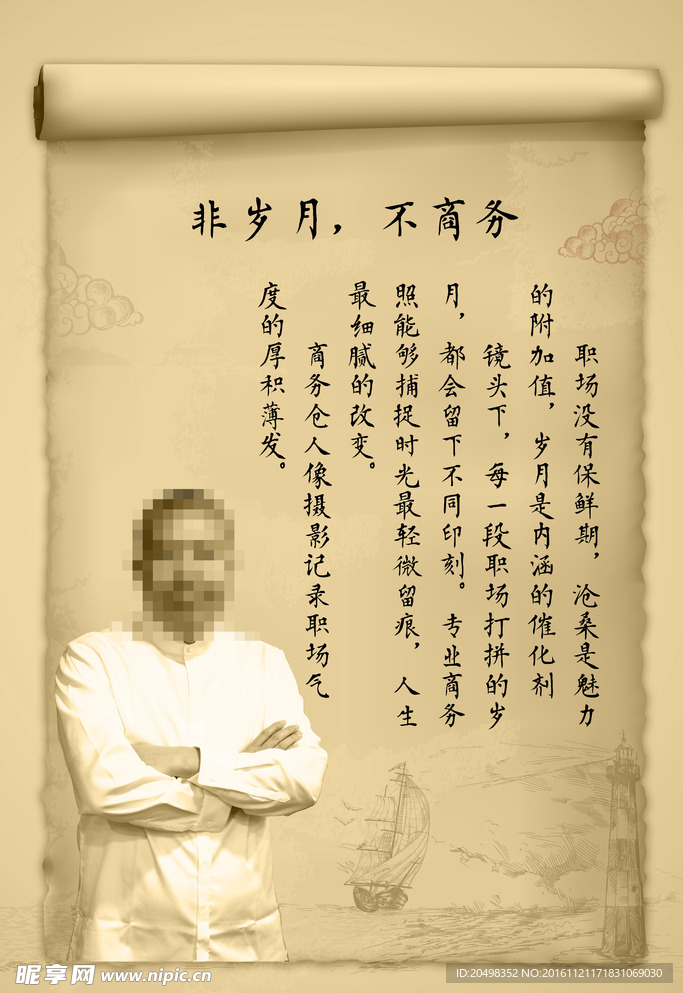 非岁月，不商务
职场没有保鲜期，沧桑是魅力
的附加值，岁月是内涵的催化剂
镜头下，每一段职场打拼的岁
月，都会留下不同印刻。专业商务
照能够捕捉时光最轻微留痕，人生
最细腻的改变。
商务仓人像摄影记录职场气
度的厚积薄发。
昵享网 www.nipic.cn
ID:20498352 NO:20161121171831069030